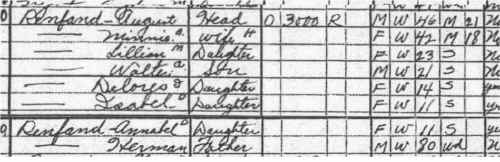 Renfand-August Head O 3000 R M W 46 M 21 No
—— Minnie a. Wife H F W 42 M 18 No
—— Lillian M Daughter F W 23 S No
—— Walter a. Son M W 21 S No
—— Delores D Daughter F W 14 S yes
—— Isabel D Daughter F W 11 S yes
9 Renfand-Annabel D Daughter F W 11 S yes
—— Herman Father M W 80 Wd No